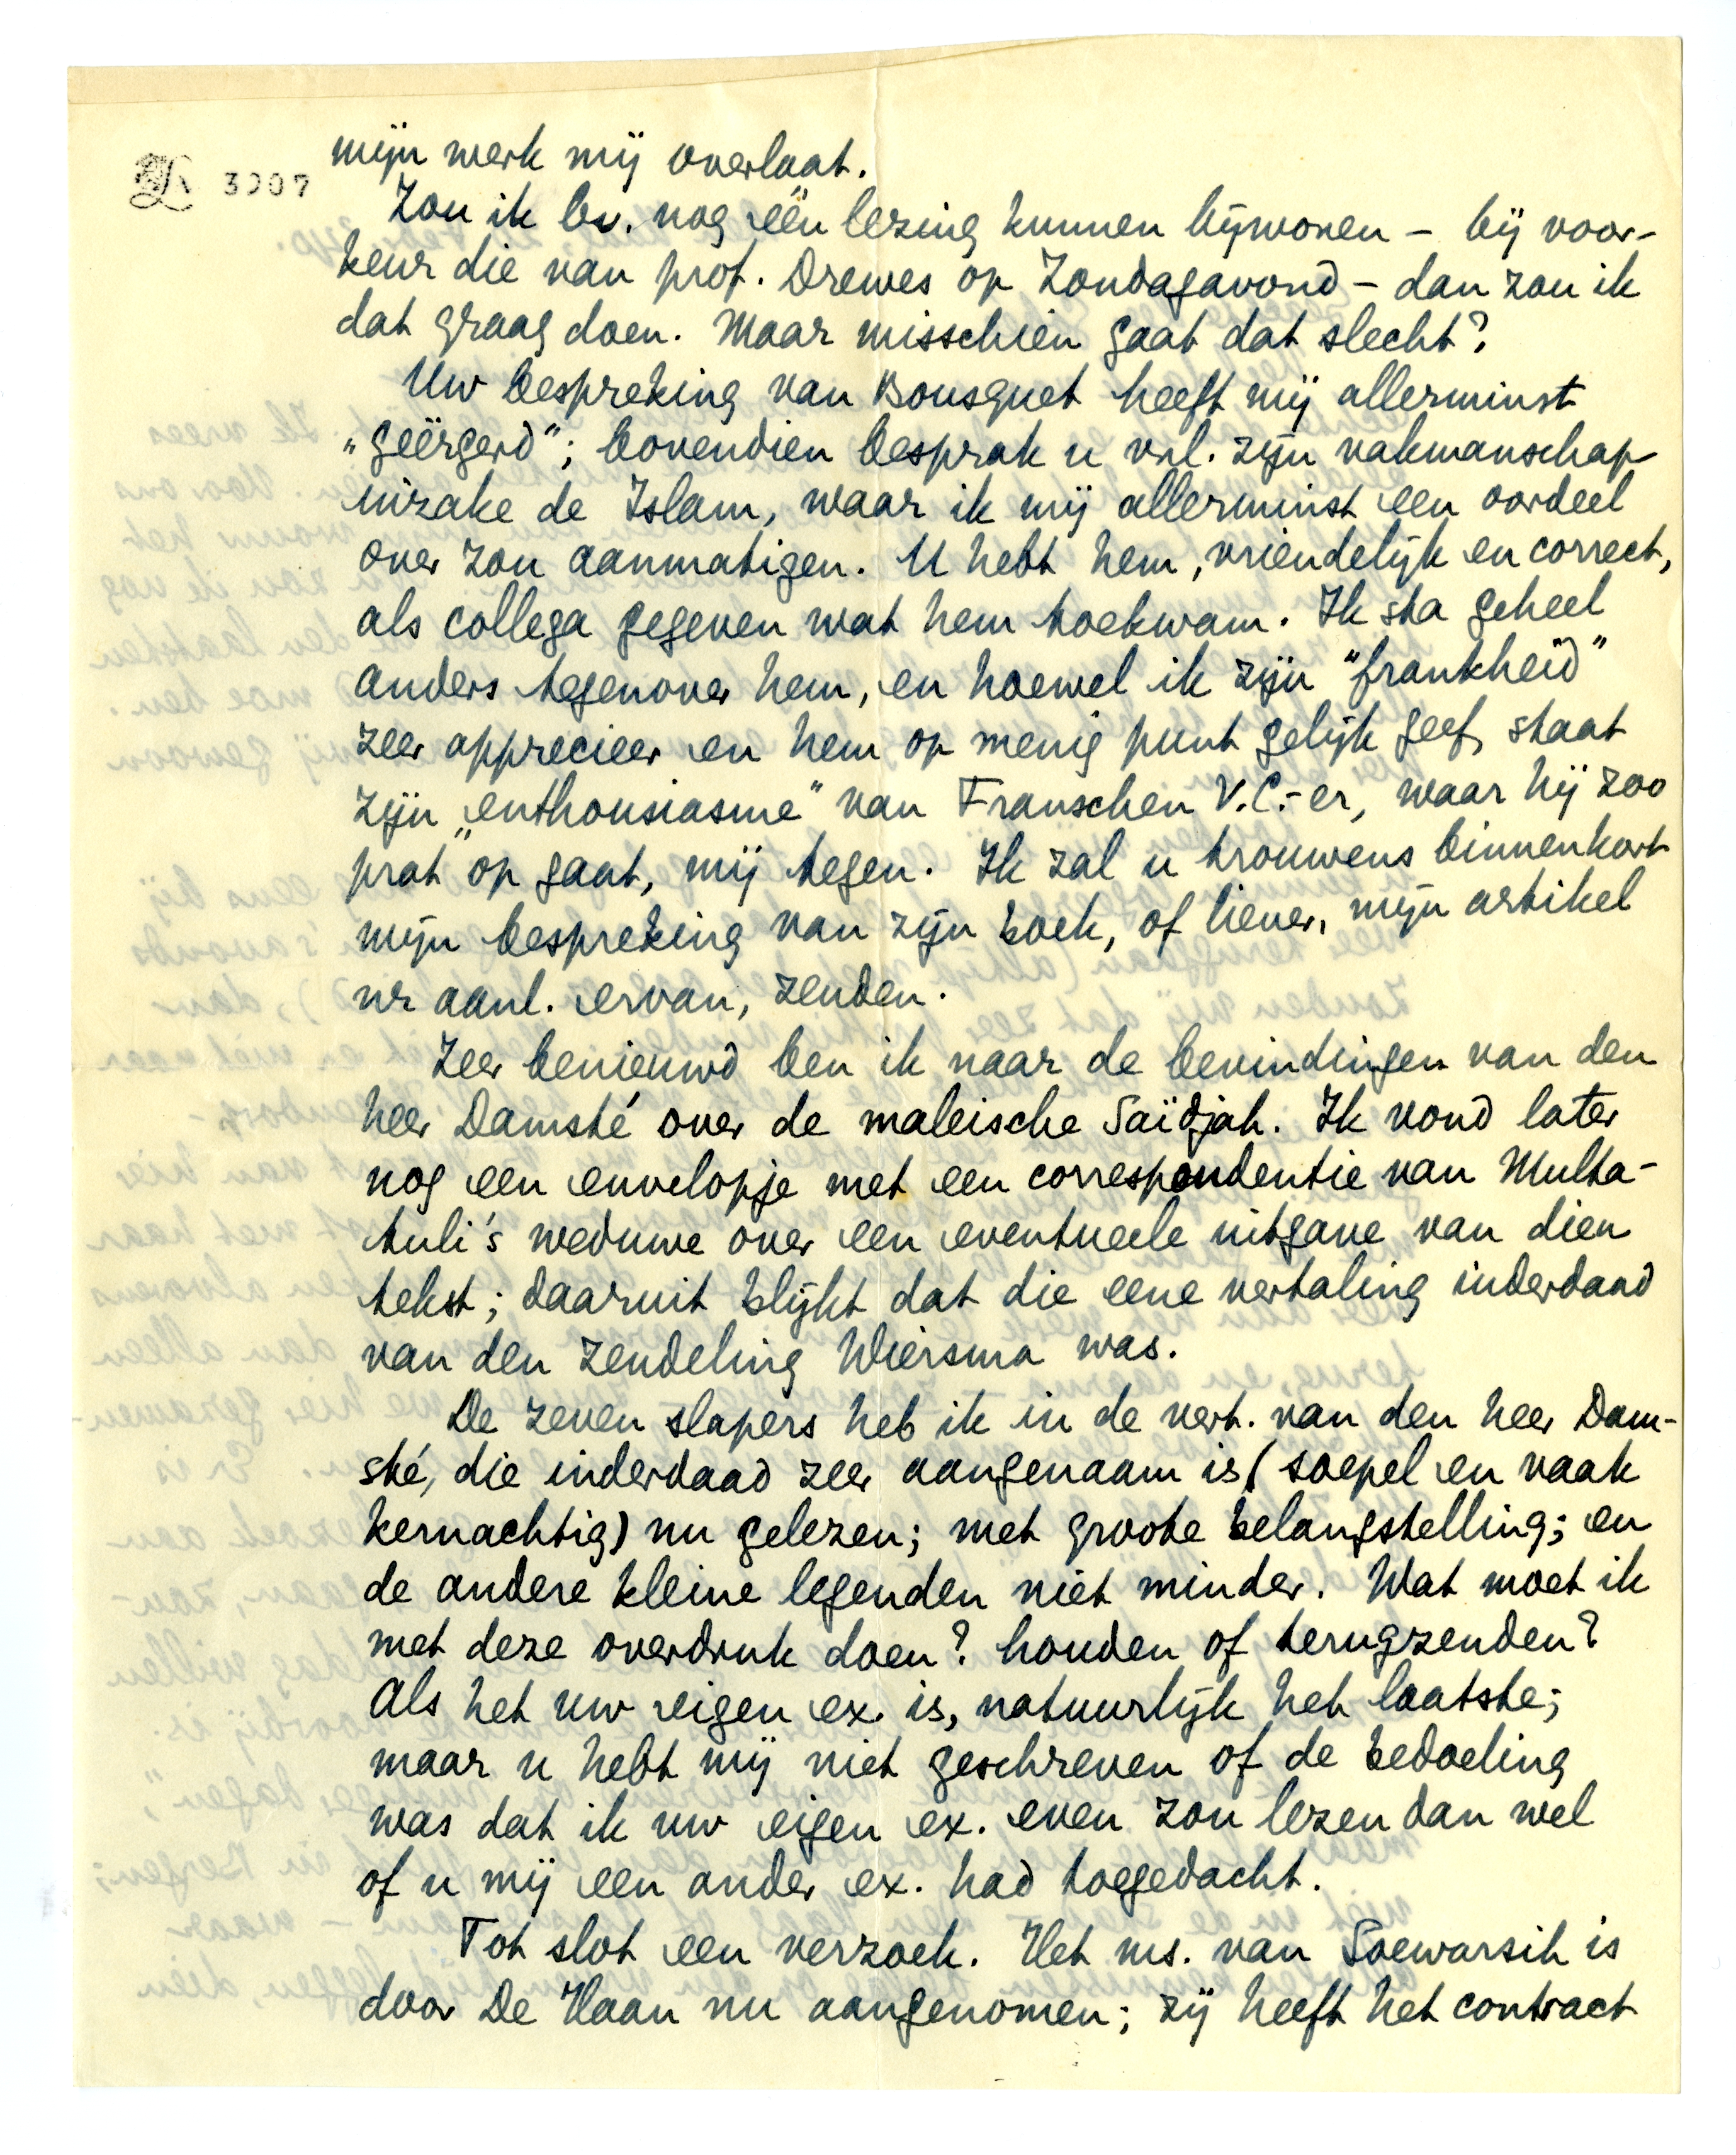 3007
mijn werk mij overlaat.
Zou ik bv. nog één lezing kunnen bijwonen – bij voor-
keur die van prof. Drewes op Zondagavond – dan zou ik
dat graag doen. Maar misschien gaat dat slecht?
Uw bespreking van Bousquet heeft mij allerminst
„geërgerd”; bovendien besprak u vnl. zijn vakmanschap
inzake de Islam, waar ik mij allerminst een oordeel
over zou aanmatigen. U hebt hem, vriendelijk en correct,
als collega gegeven wat hem toekwam. Ik sta geheel
anders tegenover hem, en hoewel ik zijn "frankheid"
zeer apprecieer en hem op menig punt gelijk geef, staat
zijn „enthousiasme” van Franschen V.C.-er, waar hij zoo
prat op gaat, mij tegen. Ik zal u trouwens binnenkort
mijn bespreking van zijn boek, of liever, mijn artikel
nr aanl. ervan, zenden.
Zeer benieuwd ben ik naar de bevindingen van den
heer Damsté over de maleische Saïdjah. Ik vond later
nog een envelopje met een correspondentie van Multa-
tuli's weduwe over een eventueele uitgave van dien
tekst; daaruit blijkt dat die eene vertaling inderdaad
van den zendeling Wiersma was.
De zeven slapers heb ik in de vert. van den heer Dam-
sté, die inderdaad zeer aangenaam is (soepel en vaak
kernachtig) nu gelezen; met groote belangstelling; en
de andere kleine legenden niet minder. Wat moet ik
met deze overdruk doen? houden of terugzenden?
Als het uw eigen ex. is, natuurlijk het laatste;
maar u hebt mij niet geschreven of de bedoeling
was dat ik uw eigen ex. even zou lezen dan wel
of u mij een ander ex. had toegedacht.
Tot slot een verzoek. Het ms. van Soewarsih is
door De Haan nu aangenomen; zij heeft het contract